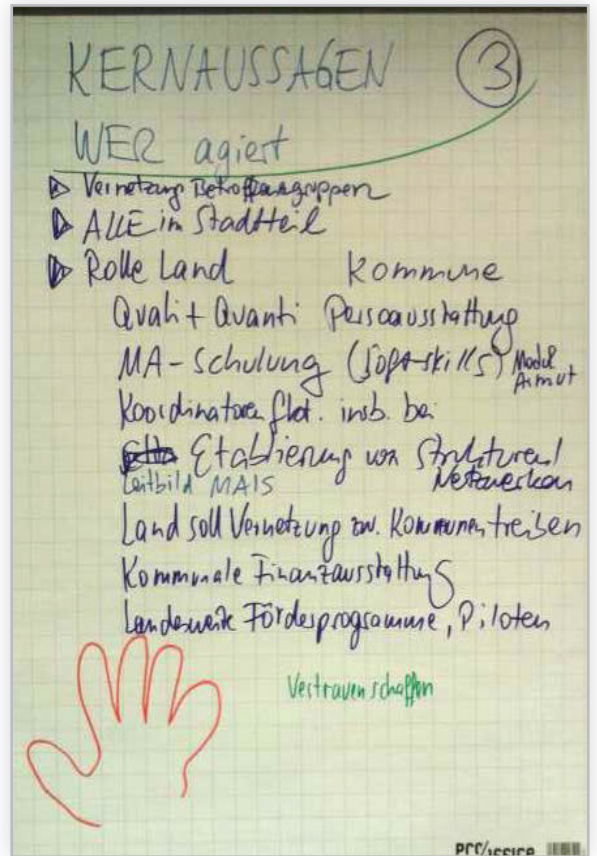 KERNAUSSAGEN ③
WER agiert
Vernetzung Betroffenengruppen
ALLE im Stadtteil
Rolle Land Kommune
Quali + Quanti Persoausstattung
MA-Schulung (Soft-skills) Modul Armut
Koordinatoren insb. bei
Etablierung von Strukturen/
Leitbild MAIS Netzwerken
Land soll Vernetzung zw. Kommunen treiben
Kommunale Finanzausstattung
Landesweite Förderprogramme, Piloten
Vertrauen schaffen